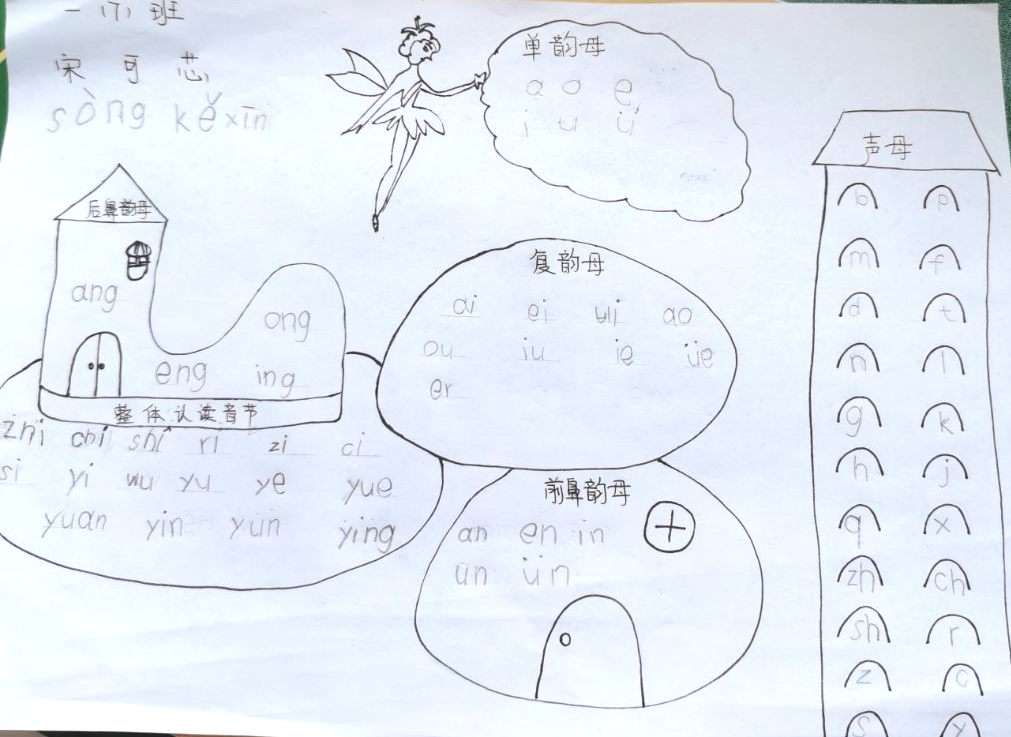 一（7）班
宋可芯
sòng kěxīn
单韵母
a o e
i u ü
声母
b p
m f
d t
n l
g k
h j
q x
zh ch
sh r
z c
s y
后鼻韵母
ang
ong
eng ing
复韵母
ai ei ui ao
ou iu ie üe
er
整体认读音节
zhi chi shi ri zi ci
si yi wu yu ye yue
yuan yin yun ying
前鼻韵母
an en in
un ün